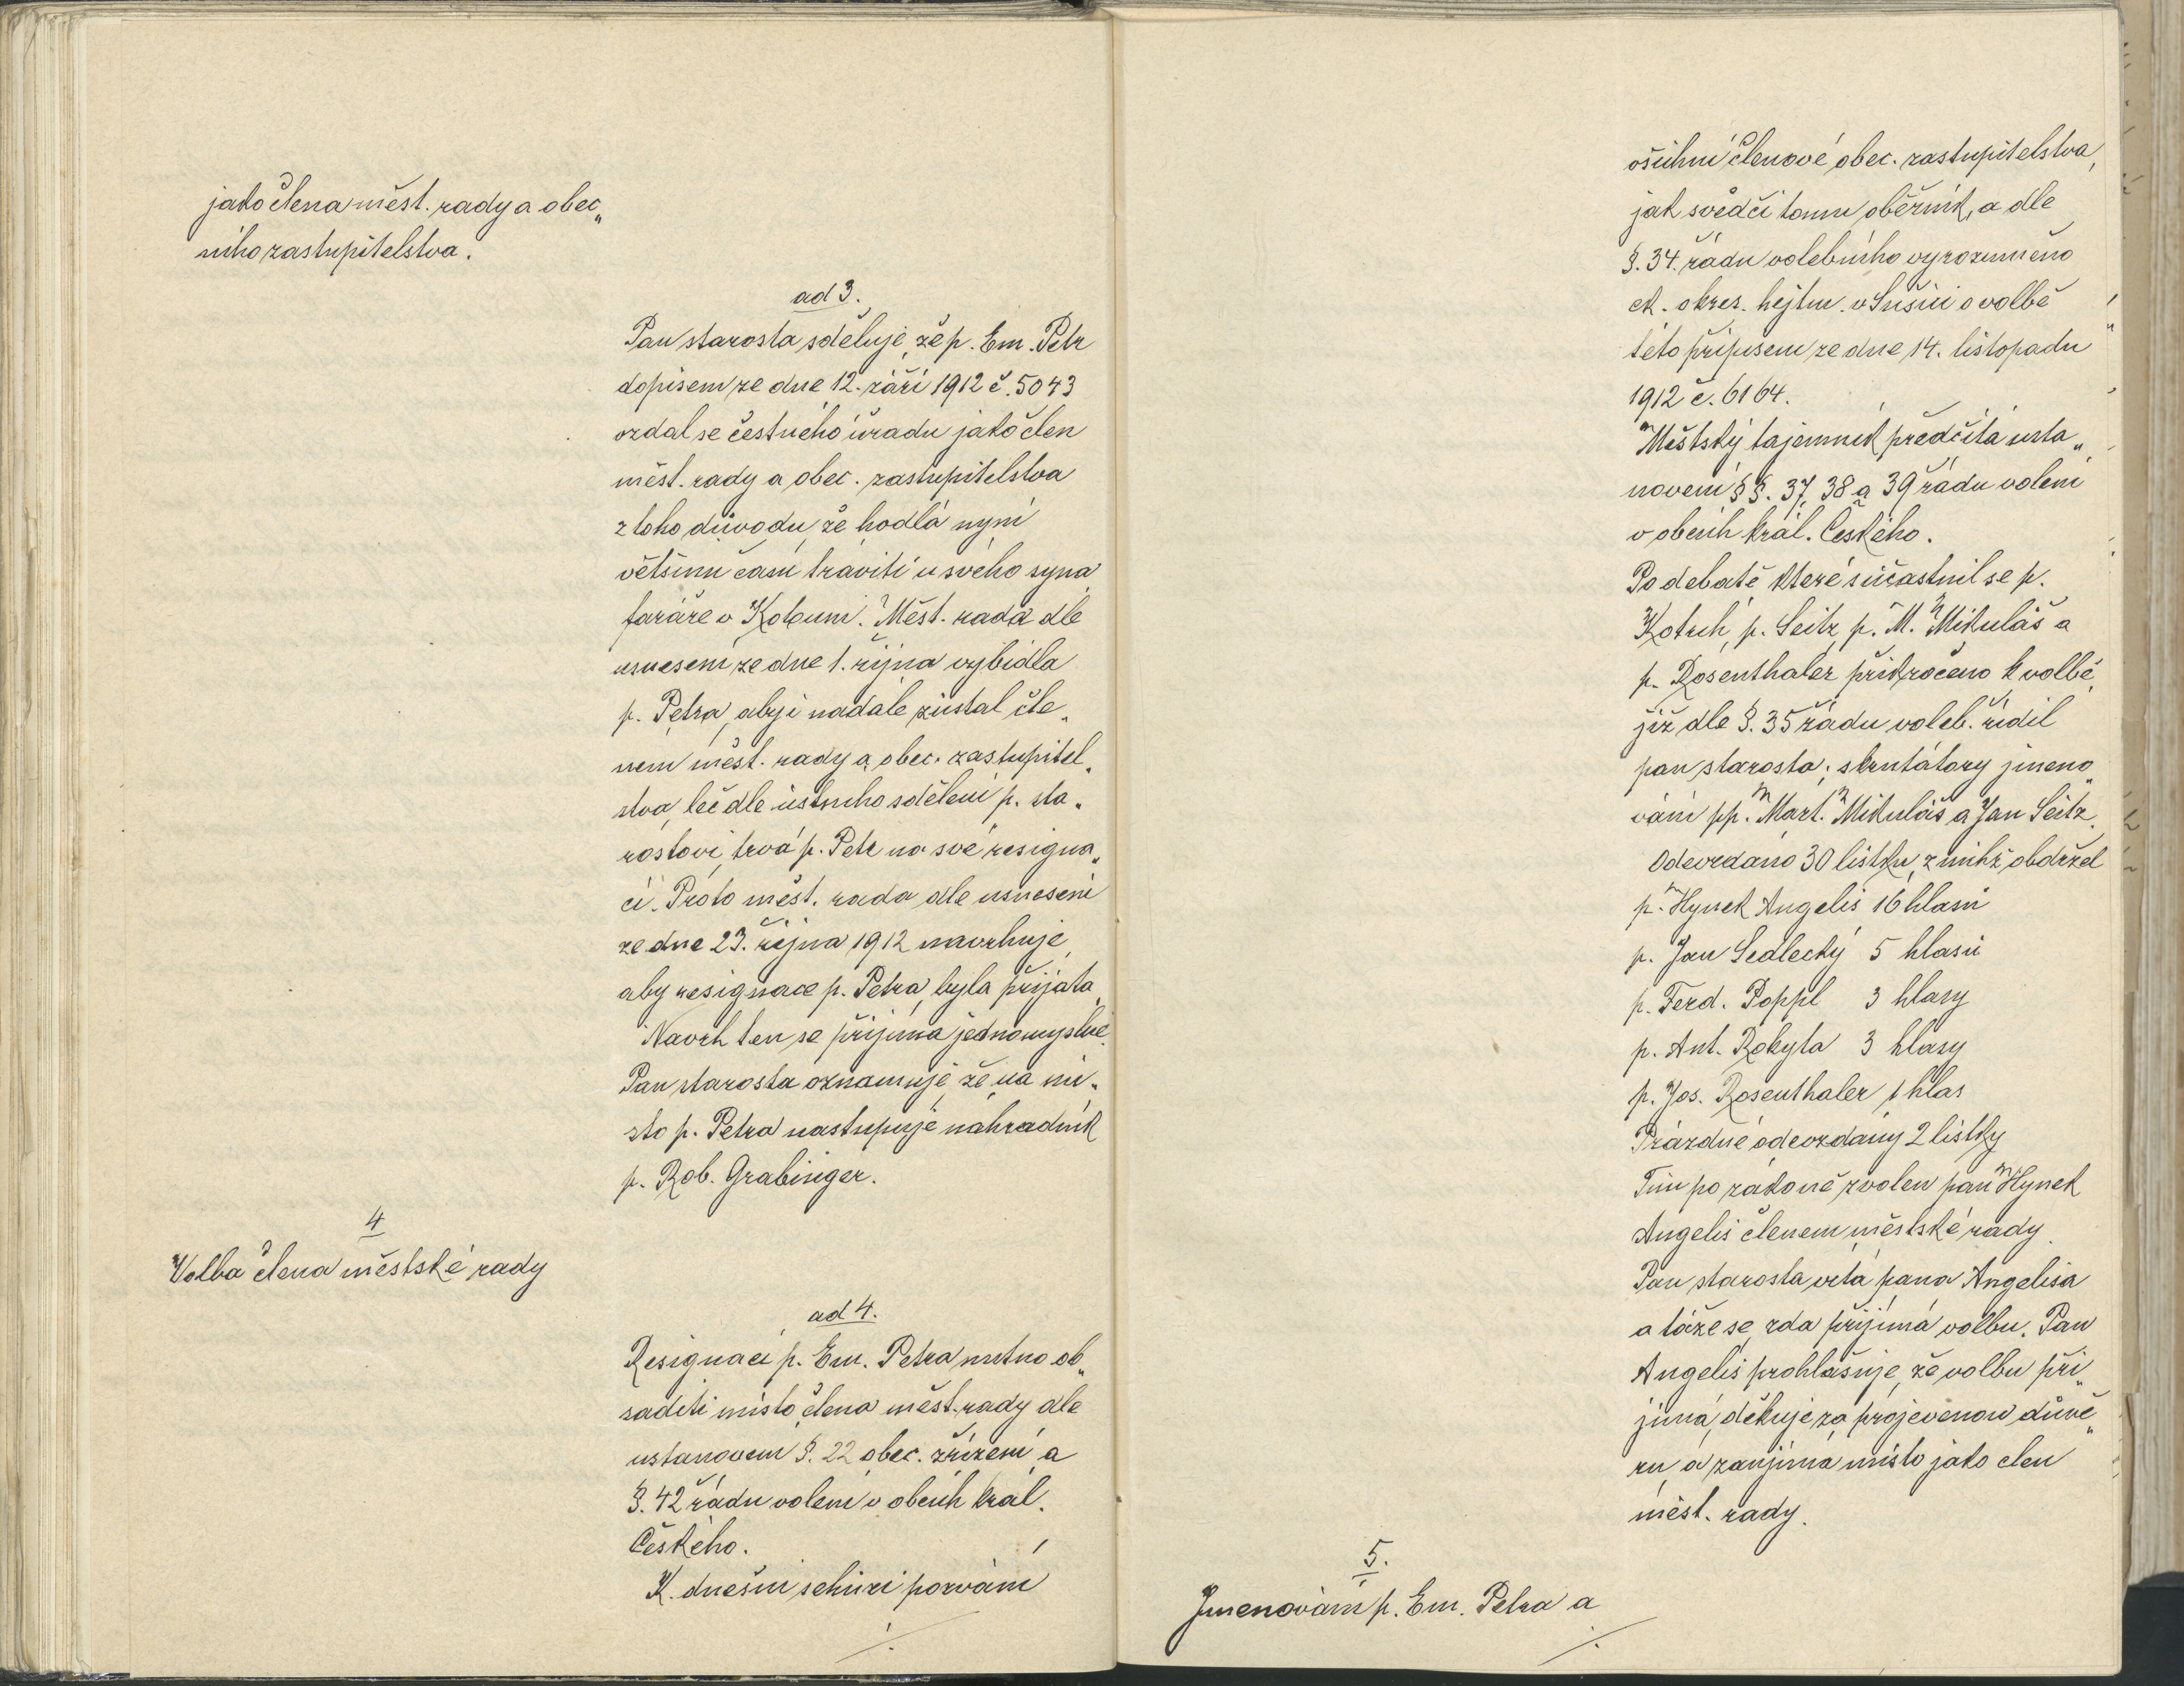 jako člena měst. rady a obec„
ního zastupitelstva.
ad 3.
Pan starosta sděluje, že p. Em. Petr
dopisem ze dne 12. září 1912 č. 5043
vzdal se čestného úřadu jako člen
měst. rady a obec. zastupitelstva
z toho důvodu, že hodlá nyní
většinu času tráviti u svého syna
faráře v Kolouni. Měst. rada dle
usnesení ze dne 1. října vybídla
p. Petra, aby i nadále zůstal čle„
nem měst. rady a obec. zastupitel„
stva, leč dle ústního sdělení p. sta„
rostovi, trvá p. Petr na své resigna„
ci. Proto měst. rada dle usnesení
ze dne 23. října 1912 navrhuje,
aby resignace p. Petra, byla přijata.
Návrh ten se přijímá jednomyslně.
Pan starosta oznamuje, že na mí„
sto p. Petra nastupuje náhradník
p. Rob. Grabinger.
4
Volba člena městské rady
ad 4.
Resignací p. Em. Petra nutno ob„
saditi místo člena měst. rady dle
ustanovení §. 22 obec. zřízení a
§. 42 řádu volení v obcích král.
Českého.
K dnešní schůzi pozváni
./.
všichni členové obec. zastupitelstva,
jak svědčí tomu oběžník, a dle
§. 34. řádu volebního vyrozuměno
ck. okres. hejtm. v Sušici o volbě
této přípisem ze dne 14. listopadu
1912 č. 6164.
Městský tajemník předčítá usta„
novení §§. 37, 38 a 39 řádu volení
v obcích král. Českého.
Po debatě, které súčastnil se p.
Kotrch, p. Seitz, p. M. Mikuláš a
p. Rosenthaler přikročeno k volbě,
již dle §. 35 řádu voleb. řídil
pan starosta; skrutátory jmeno„
váni pp. Mart. Mikuláš a Jan Seitz.
Odevzdáno 30 lístků, z nichž obdržel
p. Hynek Angelis 16 hlasů
p. Jan Sedlecký 5 hlasů
p. Ferd. Poppl 3 hlasy
p. Ant. Rokyta 3 hlasy
p. Jos. Rosenthaler 1 hlas
Prázdné odevzdány 2 lístky
Tím po zákoně zvolen pan Hynek
Angelis členem městské rady.
Pan starosta vítá pana Angelisa
a táže se, zda přijímá volbu. Pan
Angelis prohlašuje, že volbu při„
jímá, děkuje za projevenou důvě„
ru a zaujímá místo jako člen
měst. rady.
5.
Jmenování p. Em. Petra a
./.